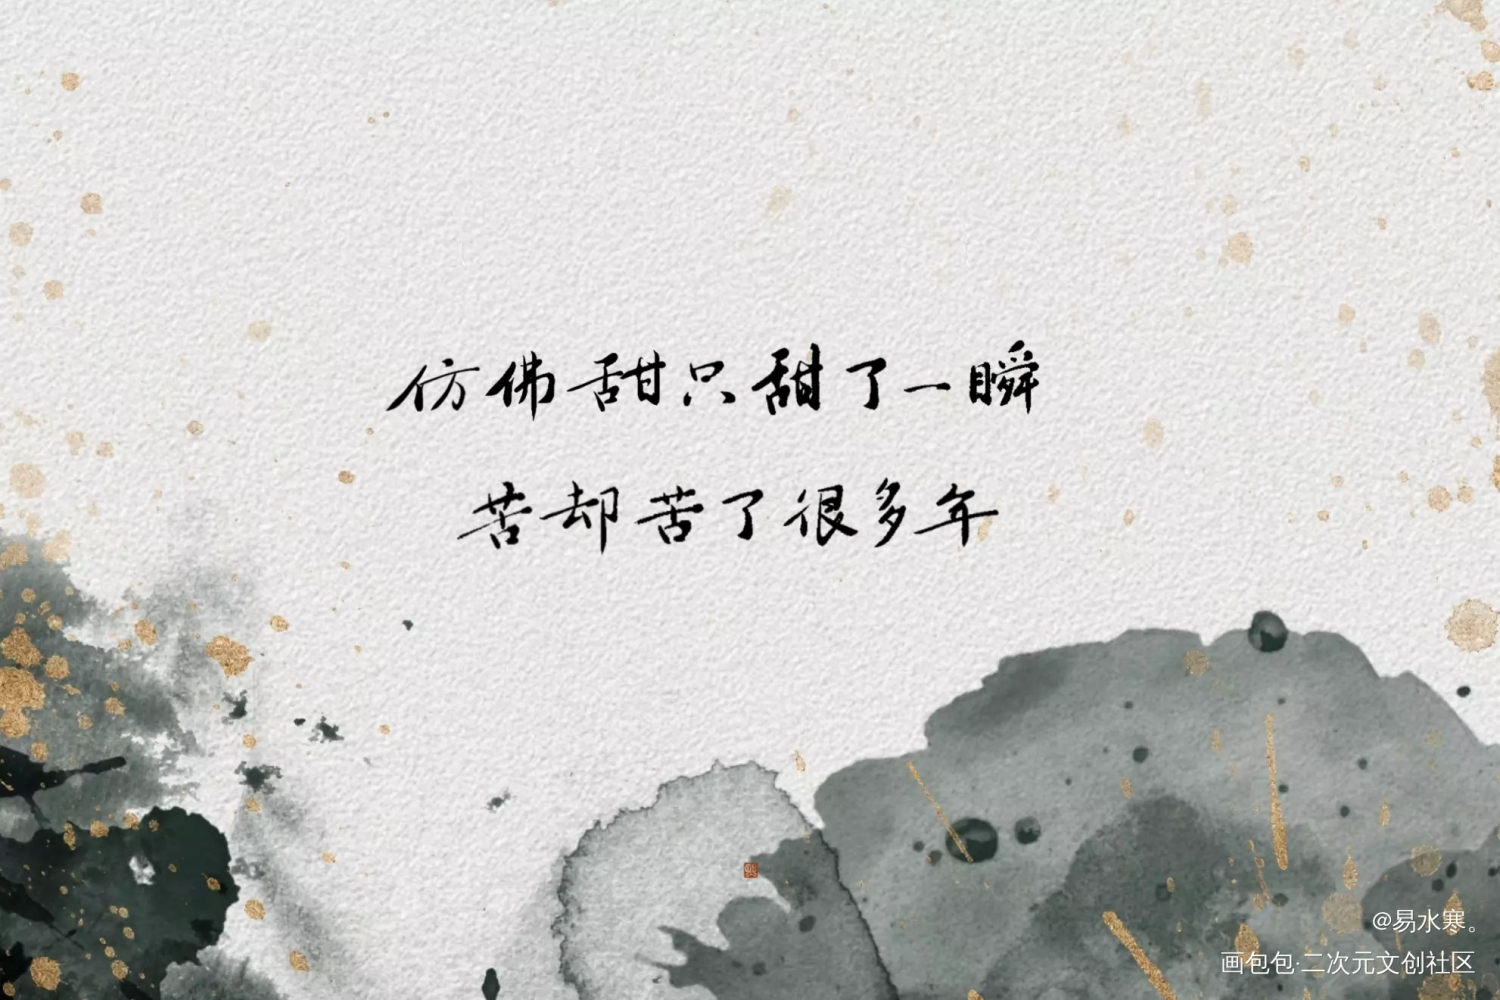 仿佛甜只甜了一瞬
苦却苦了很多年
@易水寒。
画包包·二次元文创社区